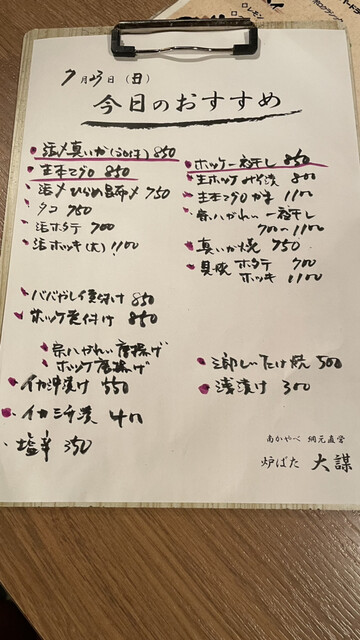 レモン
7月23日(日)
今日のおすすめ
活〆真いか 850
生本マグロ 850
活〆ひらめ昆布〆 750
タコ 750
活ホタテ 700
活ホッキ(大) 1100
ババガレイ煮付け 850
ホッケ煮付け 850
宗八がれい唐揚げ
ホッケ唐揚げ
イカ沖漬け 550
イカ三升漬 400
塩辛 350
ホッケ一夜干し 850
生ホッケみそ漬 800
生本マグロかま 1100
宗八がれい一夜干し
700〜1100
真いか焼 750
貝焼 ホタテ 700
ホッキ 1100
しいたけ焼 500
浅漬け 300
あかやべ 網元直営
炉ばた 大謀